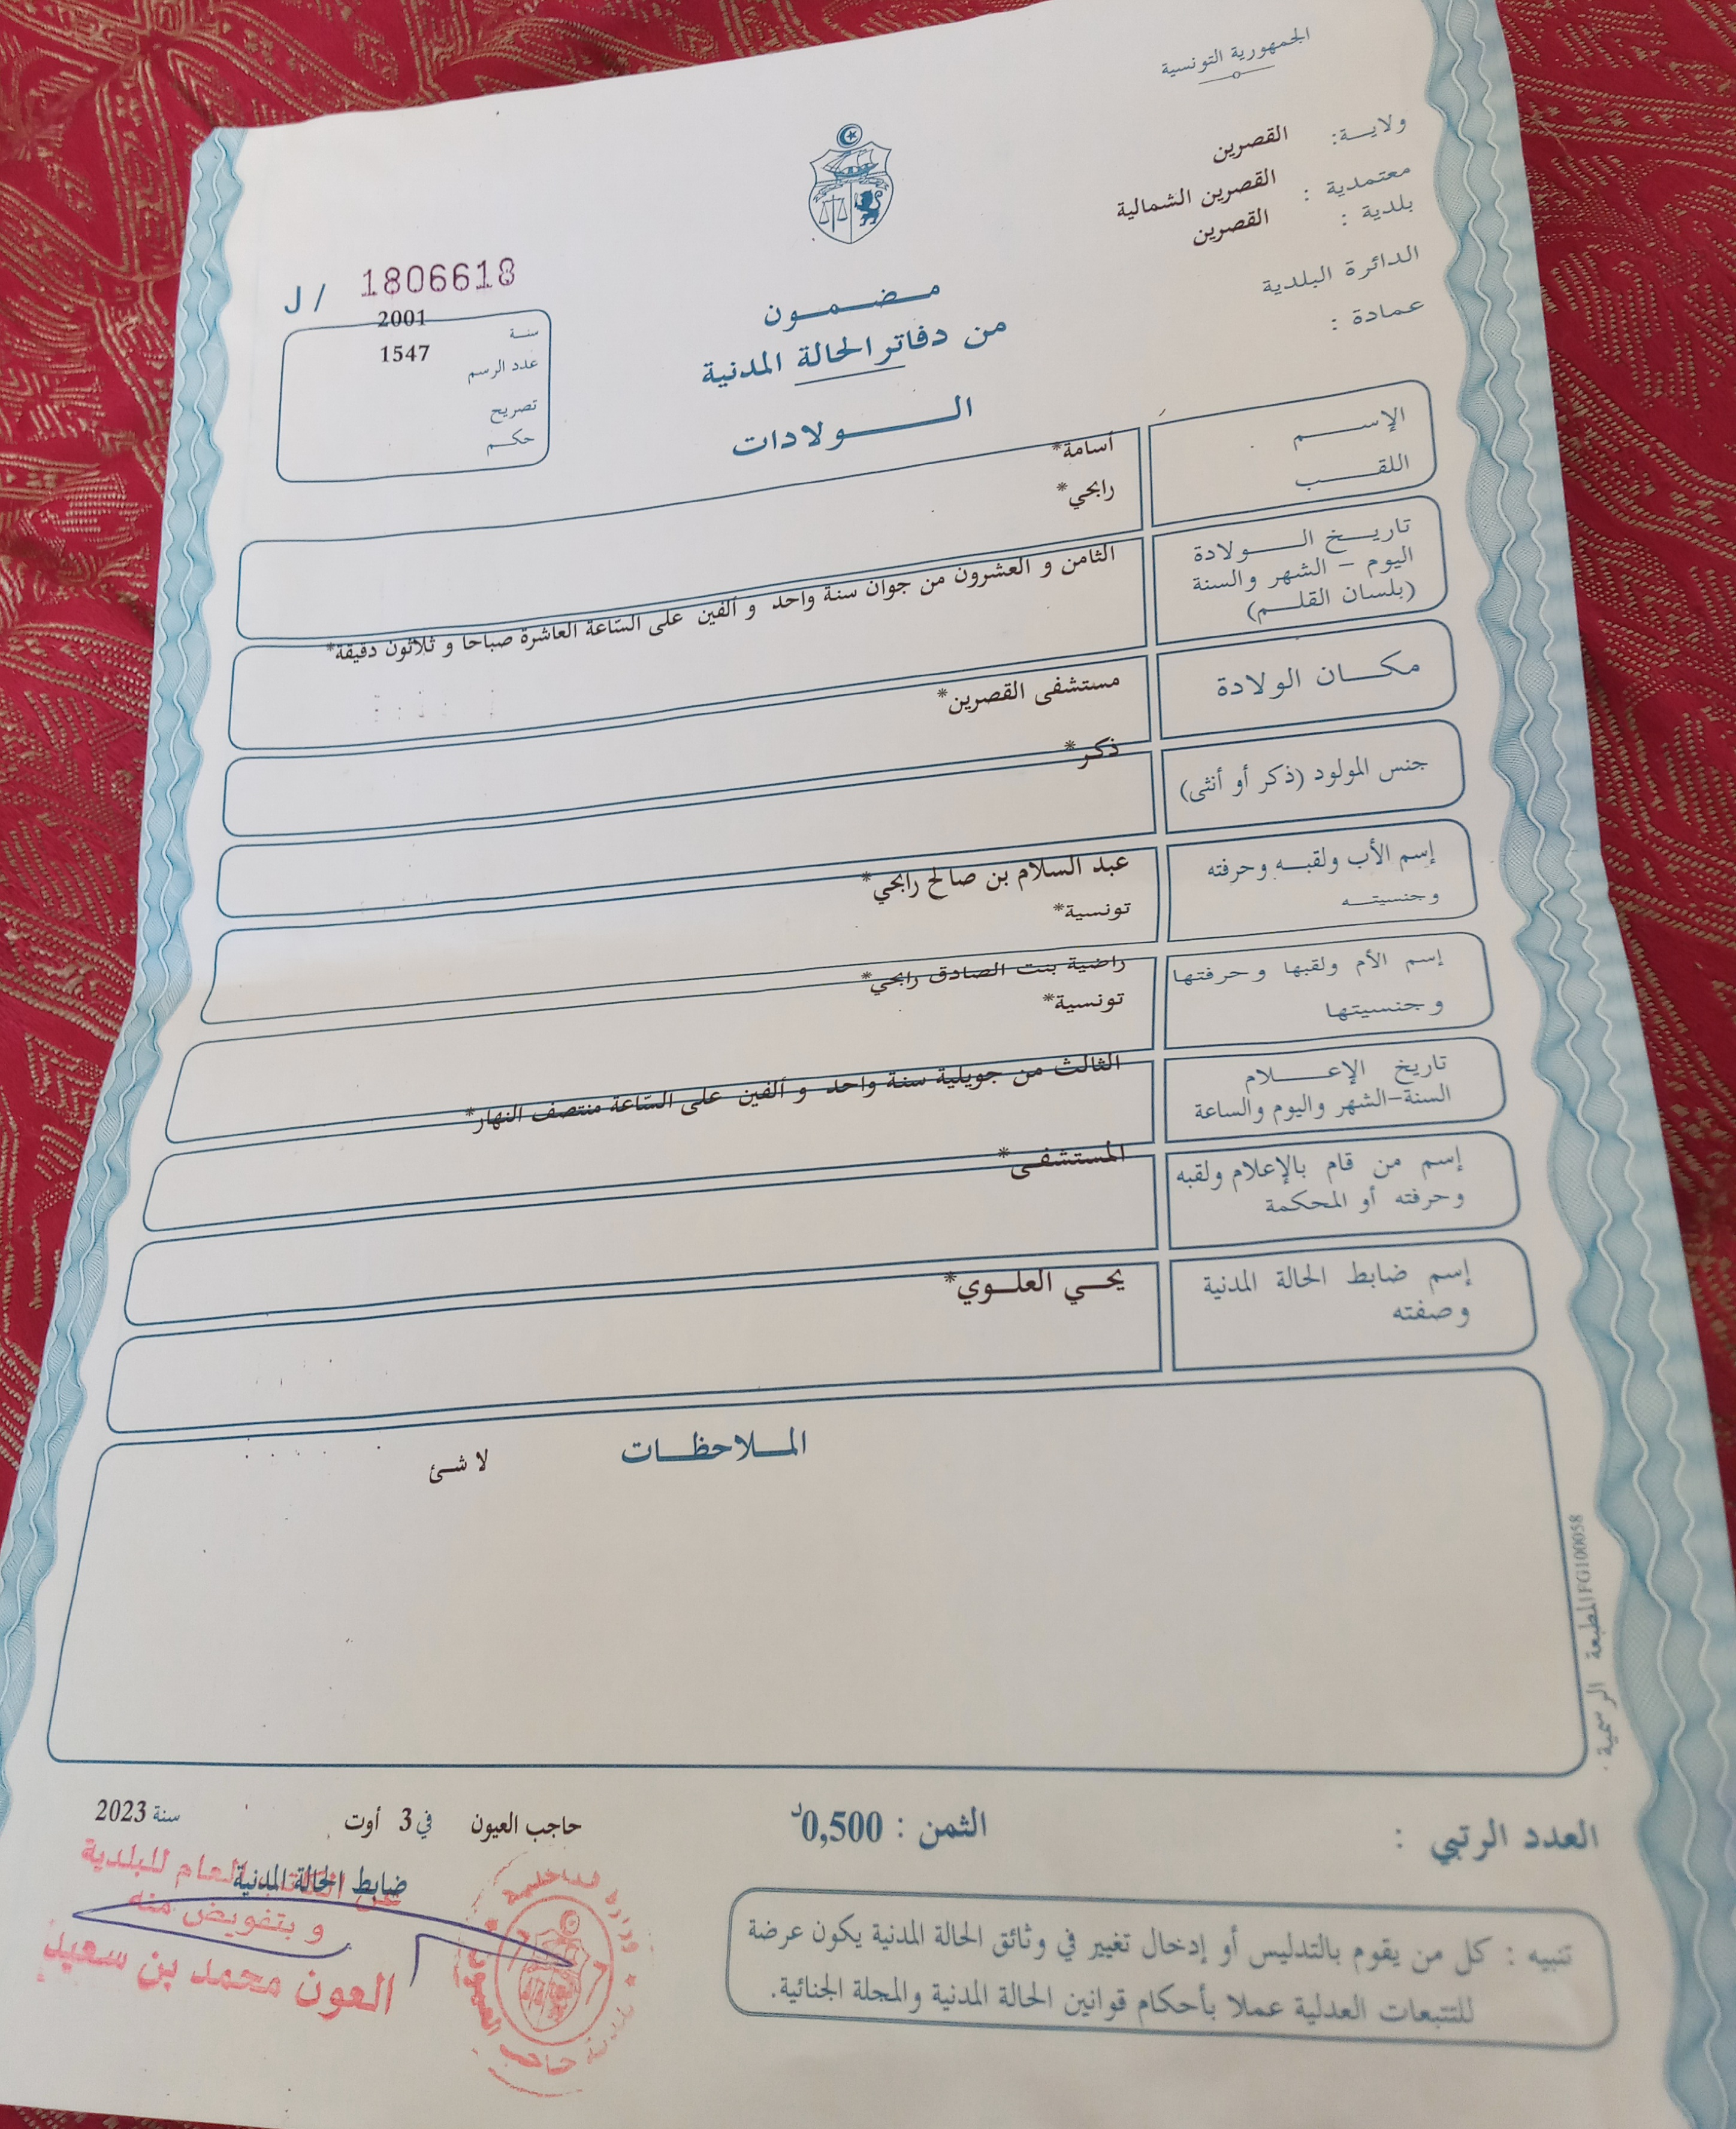 الجمهورية التونسية
ولايـة: القصرين
معتمدية : القصرين الشمالية
بلدية : القصرين
الدائرة البلدية
عمادة :
مـضـمـون
من دفاتر الحالة المدنية
الـولادات
J / 1806618
سنة 2001
عدد الرسم 1547
تصريح
حكم
الإسـم أسامة*
اللقـب رابحي*
تاريـخ الـولادة
اليوم - الشهر والسنة
(بلسان القلـم)
الثامن و العشرون من جوان سنة واحد و ألفين على السّاعة العاشرة صباحا و ثلاثون دقيقة*
مكـان الولادة مستشفى القصرين*
جنس المولود (ذكر أو أنثى) ذكر*
إسم الأب ولقبـه وحرفته عبد السلام بن صالح رابحي*
وجنسيتـه تونسية*
إسم الأم ولقبها وحرفتها راضية بنت الصادق رابحي*
وجنسيتها تونسية*
تاريخ الإعـلام
السنة-الشهر واليوم والساعة
الثالث من جويلية سنة واحد و ألفين على السّاعة منتصف النهار*
إسم من قام بالإعلام ولقبه المستشفى*
وحرفته أو المحكمة
إسم ضابط الحالة المدنية يحـي العلـوي*
وصفته
المـلاحظـات
لا شئ
المطبعة الرسمية. FG100058
العدد الرتبي :
الثمن : 0,500د
حاجب العيون في 3 أوت سنة 2023
ضابط الحالة المدنية
العام للبلدية
و بتفويض منه
العون محمد بن سعيد
وزارة الداخلية
حاجب العيون
تنبيه : كل من يقوم بالتدليس أو إدخال تغيير في وثائق الحالة المدنية يكون عرضة
للتتبعات العدلية عملا بأحكام قوانين الحالة المدنية والمجلة الجنائية.